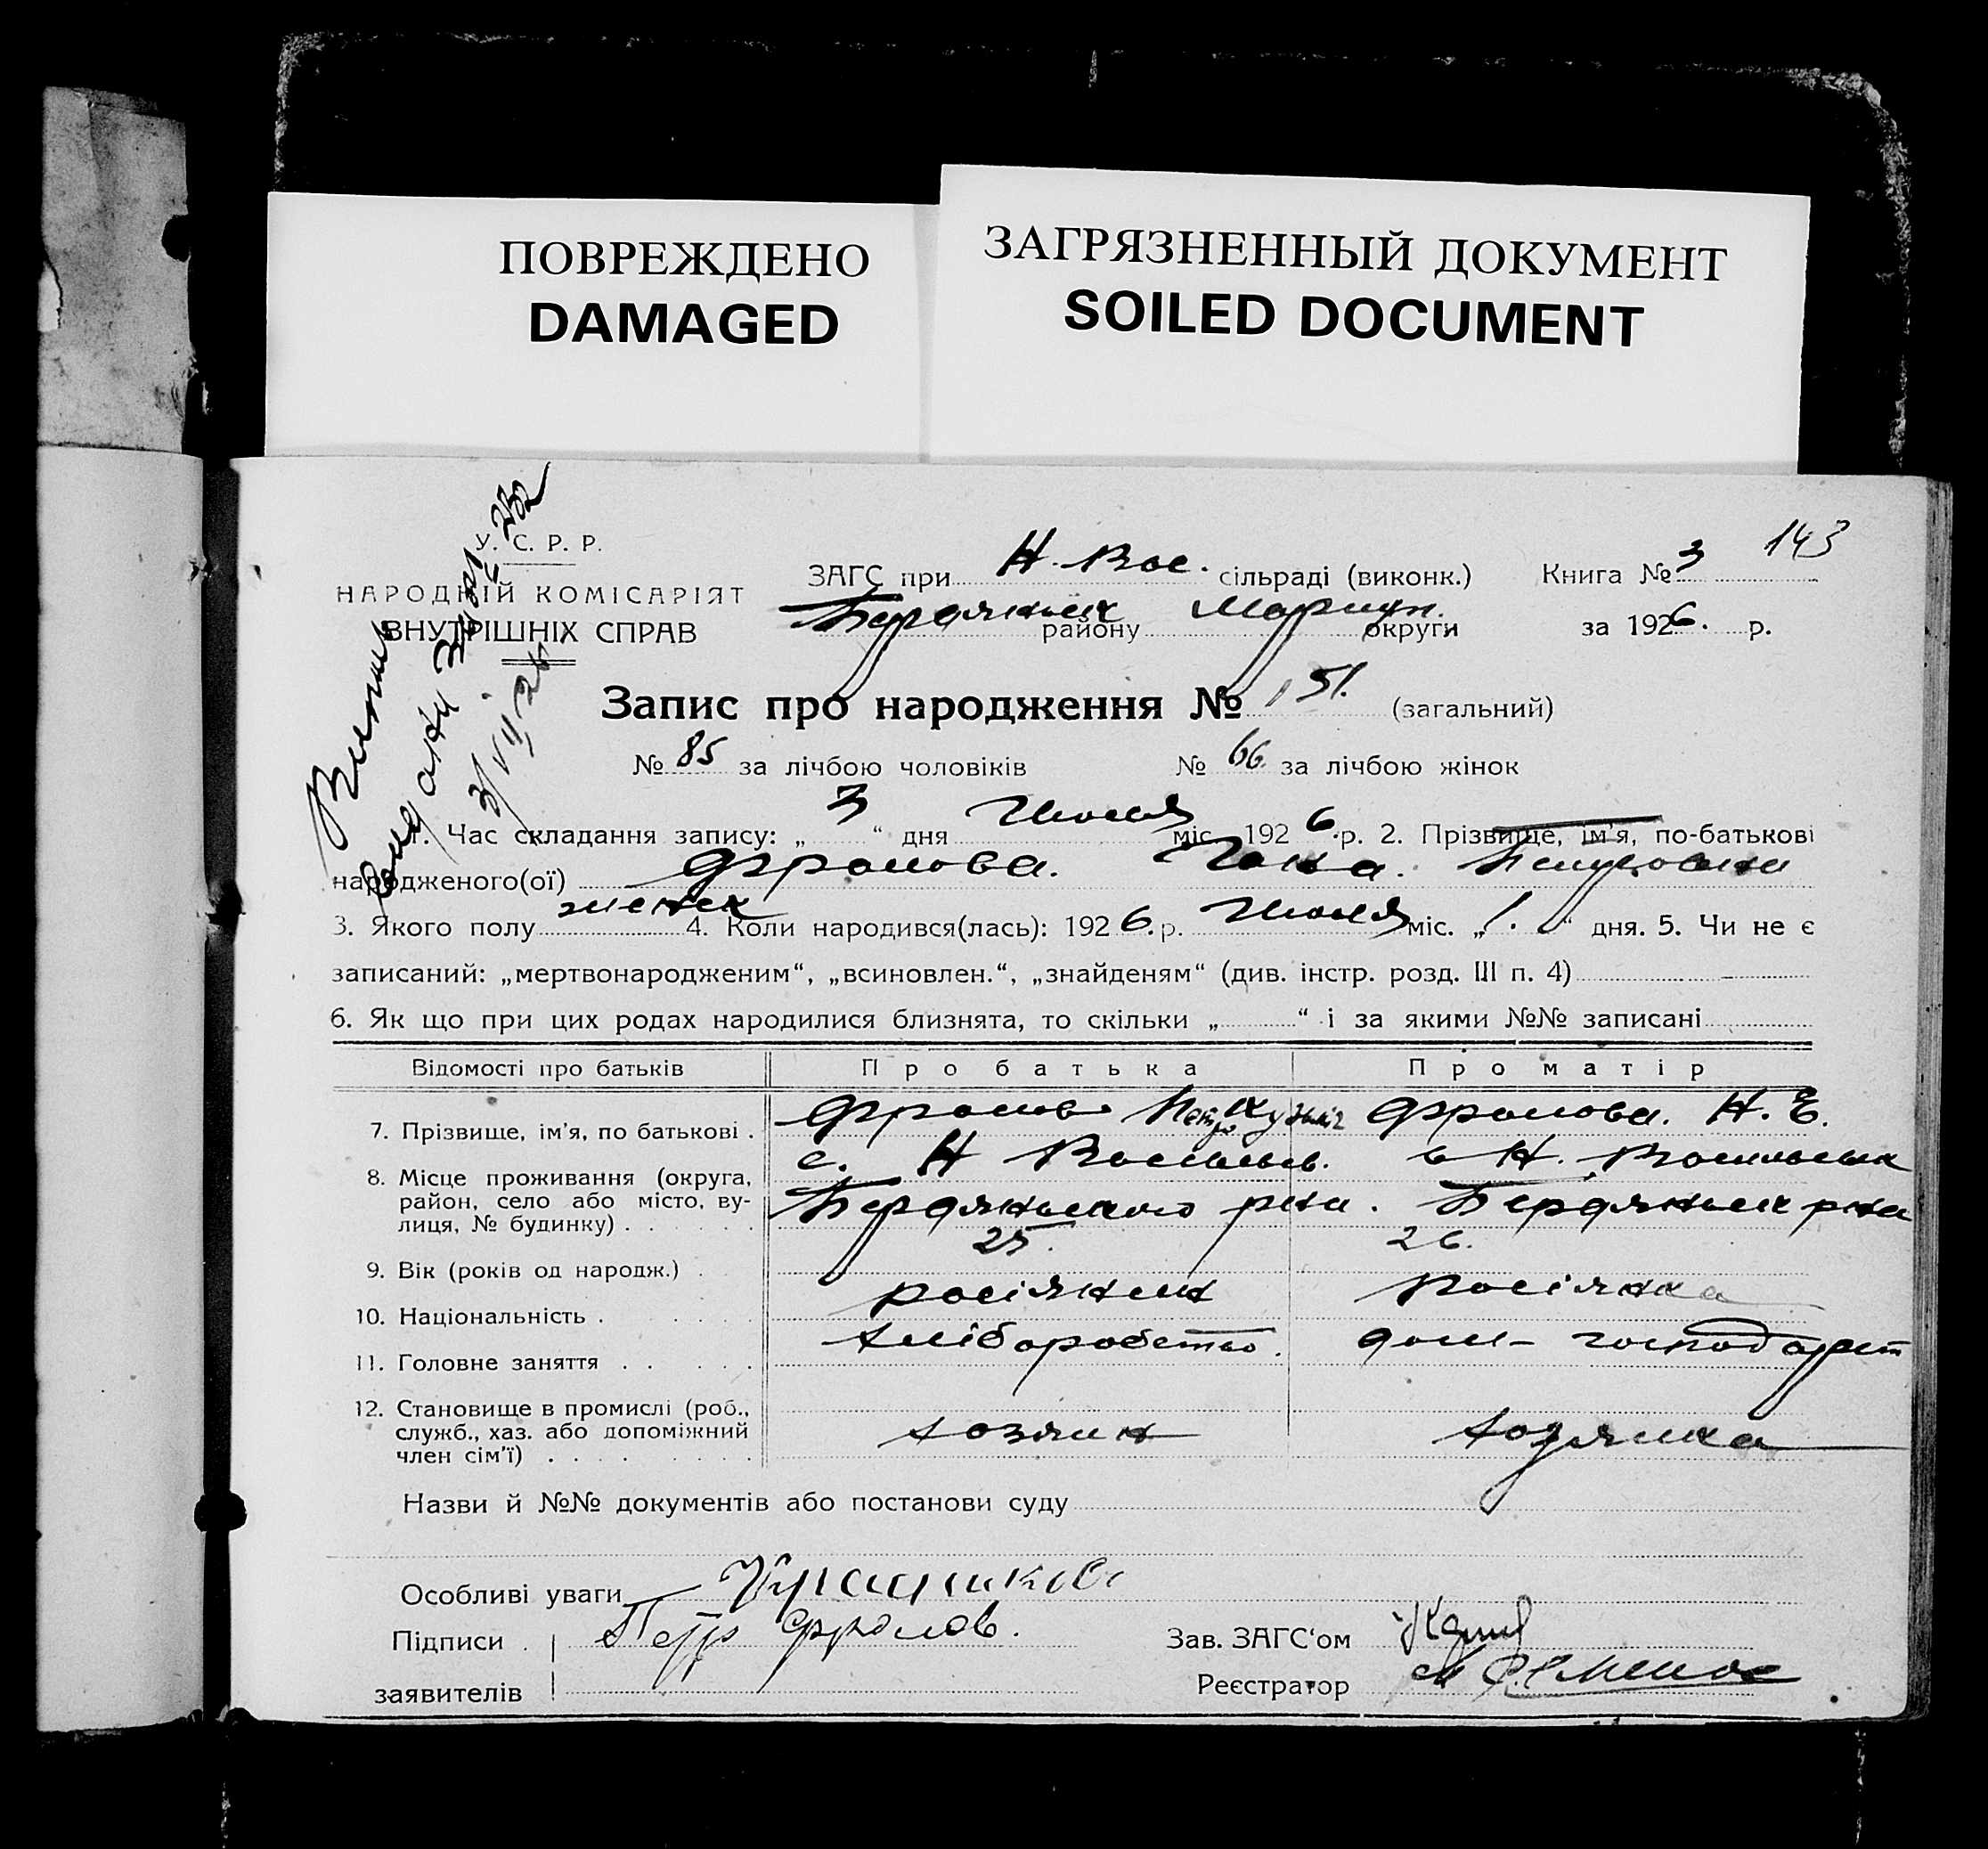 ПОВРЕЖДЕНО
DAMAGED
ЗАГРЯЗНЕННЫЙ ДОКУМЕНТ
SOILED DOCUMENT
143
У. С. Р. Р.
НАРОДНІЙ КОМІСАРІЯТ
ВНУТРІШНІХ СПРАВ
ЗАГС при Н-Вас. сільраді (виконк.) Книга № 3
Бердянськ району Мариуп. округи за 1926. р.
Запис про народження № 151. (загальний)
№ 85 за лічбою чоловіків № 66. за лічбою жінок
1. Час складання запису: „ 3 “ дня Июля міс. 1926 р. 2. Прізвище, ім'я, по-батькові
народженого(ої) Фролова. Петровна
3. Якого полу женск 4. Коли народився(лась): 1926. р. Июля міс. „ 1. “ дня. 5. Чи не є
записаний: „мертвонародженим“, „всиновлен.“, „знайденям“ (див. інстр. розд. III п. 4) —
6. Як що при цих родах народилися близнята, то скільки „ “ і за якими №№ записані
Відомості про батьків Про батька Про матір
7. Прізвище, ім'я, по батькові . Фролов Петро Кузьміч Фролова. Н. Е.
8. Місце проживання (округа, район, село або місто, вулиця, № будинку) . с. Н Васильев. Бердянського рна. Н. Васильевка Бердянськ рна
9. Вік (років од народж.) . 25. 26.
10. Національність . росіянин росіянка
11. Головне заняття . хліборобство. дом- господарст
12. Становище в промислі (роб., служб., хаз. або допоміжний член сім'ї) . хозяин хозяйка
Назви й №№ документів або постанови суду
Особливі уваги
Підписи заявителів Петр Фролов.
Зав. ЗАГС‘ом
Реєстратор